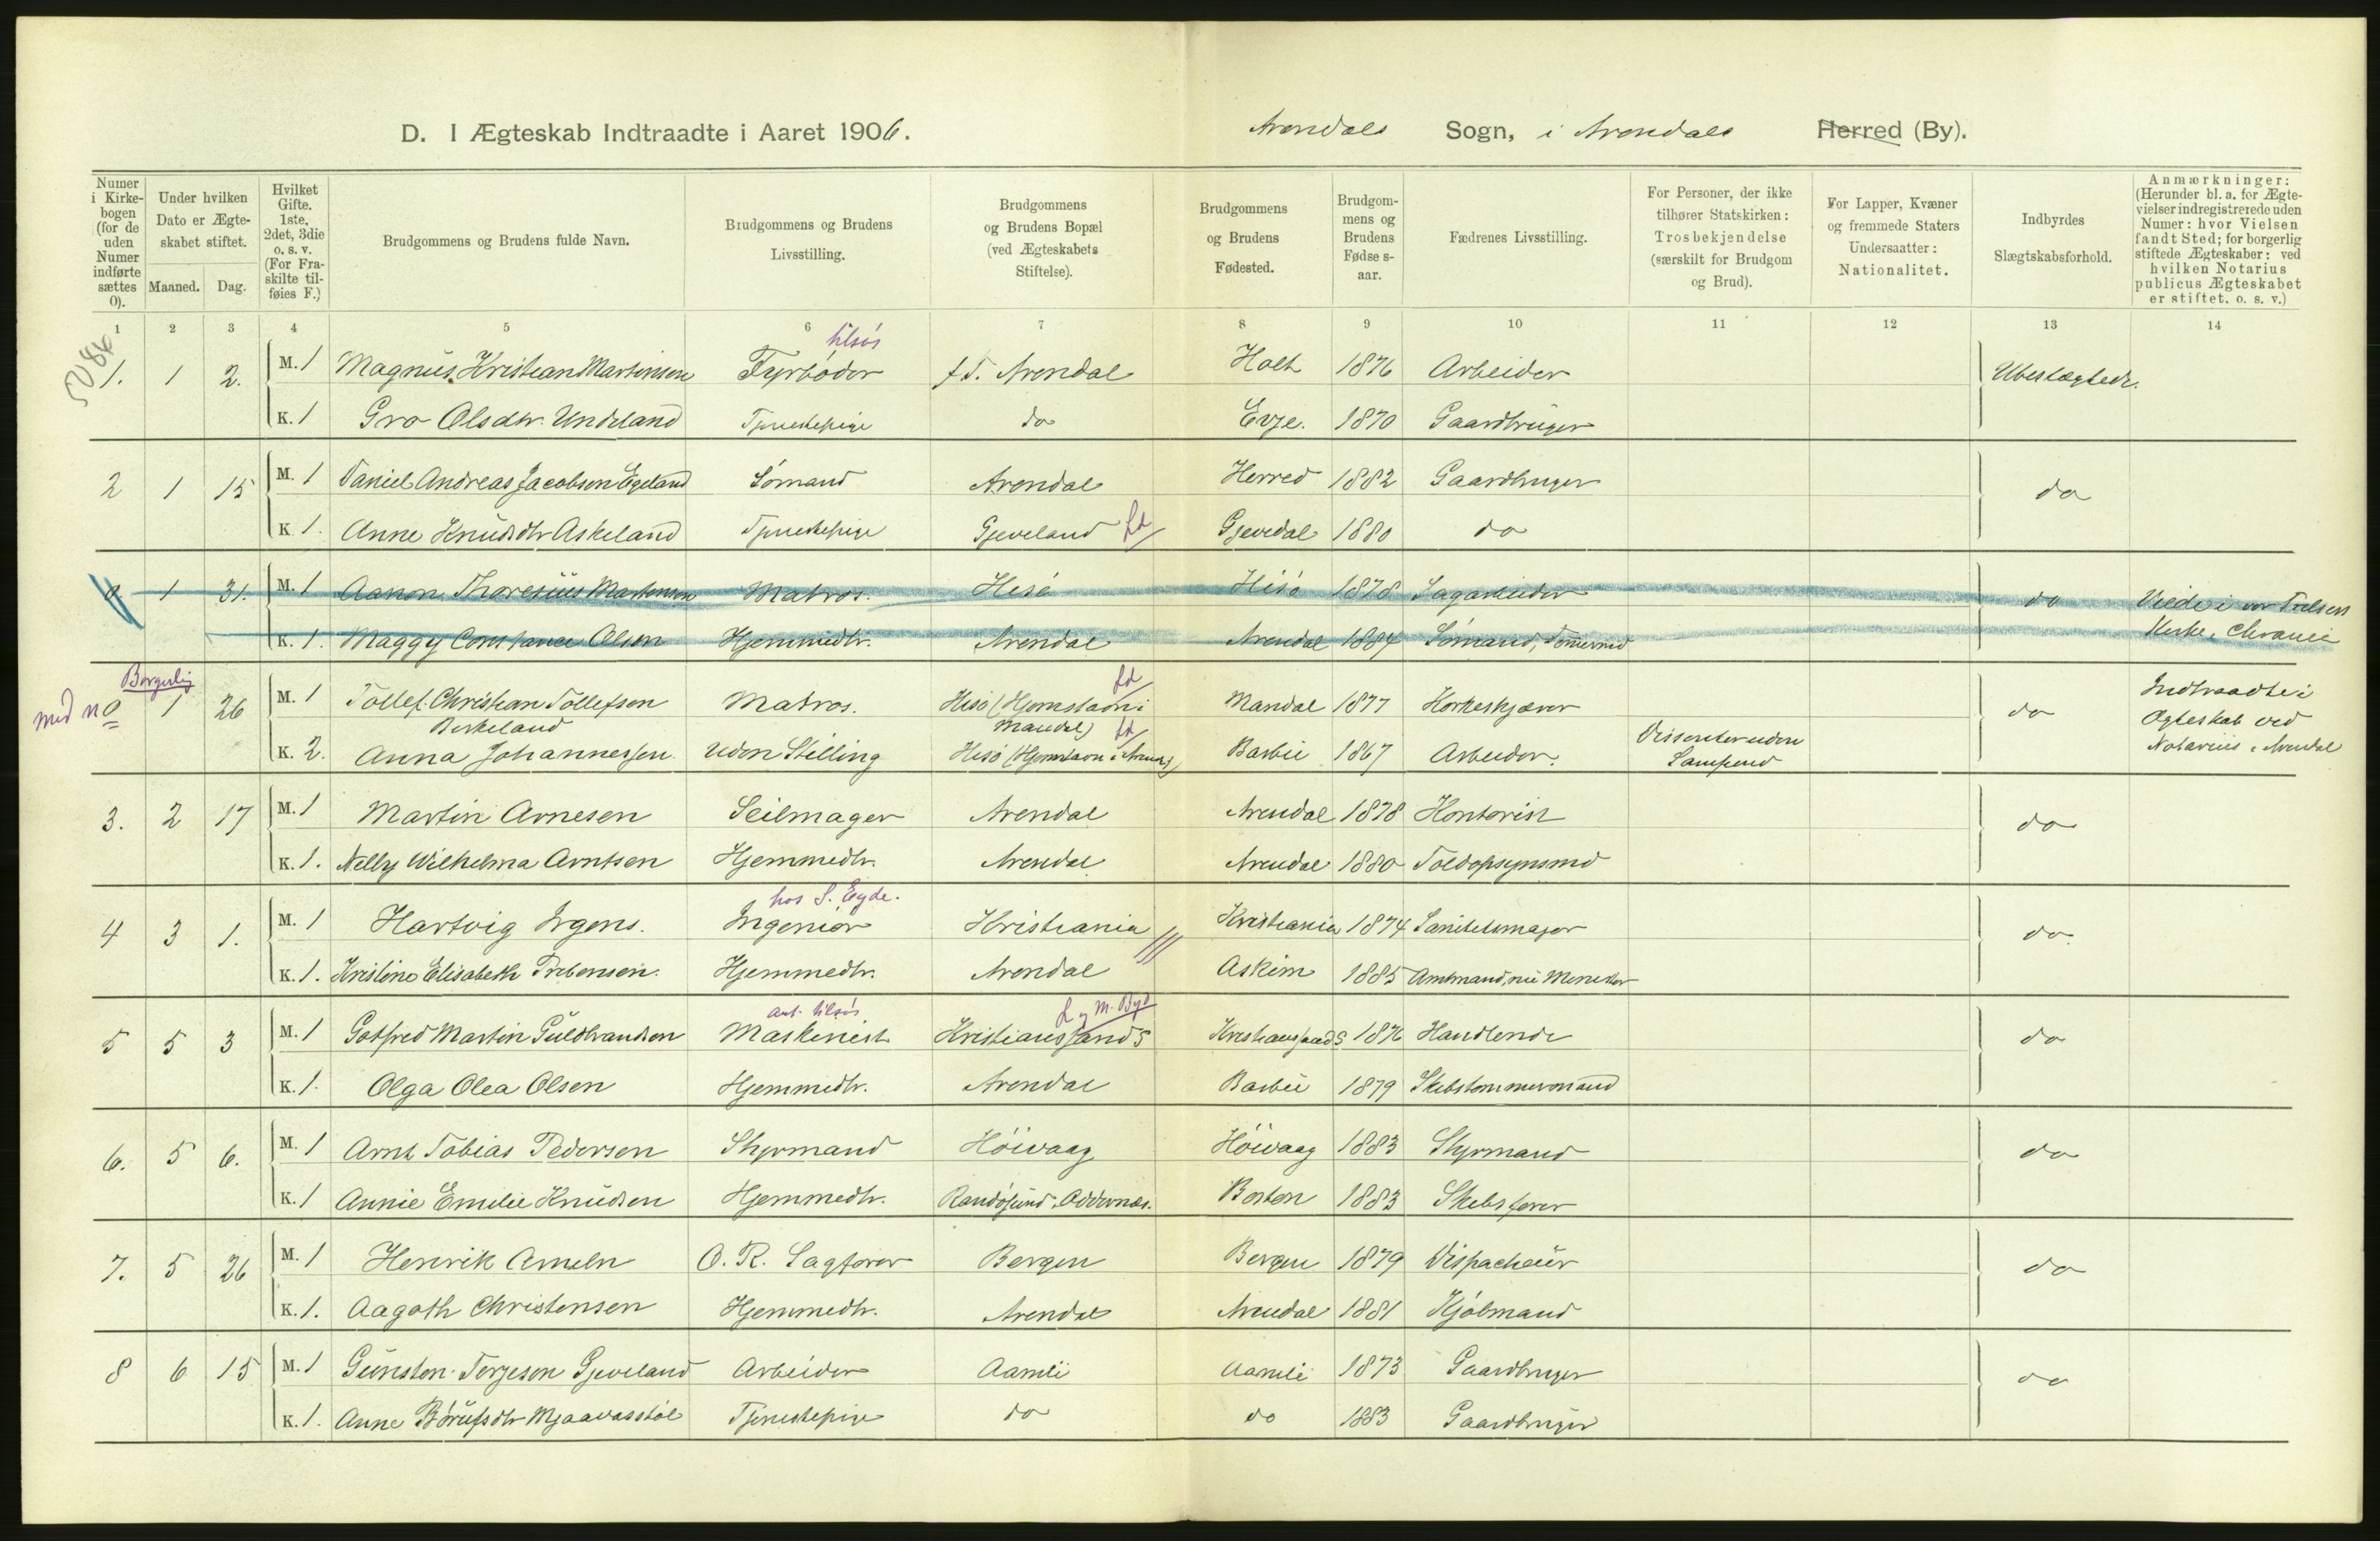 D. I Ægteskab Indtraadte i Aaret 1906.
Arendals Sogn, i Arendals Herred (By).
Numer i Kirkebogen (for de uden Numer indførte sættes 0).
Under hvilken Dato er Ægteskabet stiftet.
Maaned. Dag.
Hvilket Gifte. 1ste, 2det, 3die o. s. v. (For Fraskilte tilføies F.)
Brudgommens og Brudens fulde Navn.
Brudgommens og Brudens Livsstilling.
Brudgommens og Brudens Bopæl (ved Ægteskabets Stiftelse).
Brudgommens og Brudens Fødested.
Brudgommens og Brudens Fødselsaar.
Fædrenes Livsstilling.
For Personer, der ikke tilhører Statskirken: Trosbekjendelse (særskilt for Brudgom og Brud).
For Lapper, Kvæner og fremmede Staters Undersaatter: Nationalitet.
Indbyrdes Slægtskabsforhold.
Anmærkninger: (Herunder bl. a. for Ægtevielser indregistrerede uden Numer: hvor Vielsen fandt Sted; for borgerlig stiftede Ægteskaber: ved hvilken Notarius publicus Ægteskabet er stiftet. o. s. v.)
1 2 3 4 5 6 7 8 9 10 11 12 13 14
tilsøs
1. 1 2. M. 1 Magnus Kristian Martinsen Fyrbøder f.T. Arendal Holt 1876 Arbeider Ubeslægtede.
K. 1 Gro Olsdtr. Undeland Tjenestepige do Evje. 1870 Gaardbruger
2 1 15 M. 1 Daniel Andreas Jacobsen Egeland Sömand Arendal Herred 1882 Gaardbruger do
K 1. Anne Knudsdtr Askeland Tjenestepige Gjeveland Gjevedal 1880 do
0 1 31. M. 1 Aanon Thoresius Martensen Matros. Hisö Hisö 1878 Sagarbeider do Viede i vor Frelsers
K. 1. Maggy Constance Olsen Hjemmedtr. Arendal Arendal 1884 Sömand, Tömmermd Kirke, Chrania
Borgerlig
med n 0 1 26 M. 1 Tollef Christian Tollefsen Matros. Hisö (Hjemstavn i Mandal 1877 Korkeskjærer do Indtraadte i
Birkeland Mandal) Ægteskab ved
K. 2. Anna Johannessen uden Stilling Hisö (Hjemstavn i Arendal) Barbu 1867 Arbeider. Dissenter uden Samfund Notarius i Arendal
3. 2 17 M. 1 Martin Arnesen Seilmager Arendal Arendal 1878 Kontorist do
K. 1. Nelly Wilhelma Arntsen Hjemmedtr. Arendal Arendal 1880 Toldopsynsmd
hos S. Eyde.
4 3 1. M. 1 Hartvig Irgens. Ingeniör Kristiania Kristiania 1874 Sanitetsmajor do
K. 1. Kristine Elisabeth Prebensen. Hjemmedtr. Arendal Askim 1885 Amtmand, nu Minister
tilsøs
5 5 3 M. 1 Gotfred Martin Guldbrandsen Maskinist Kristianssand S Kristianssand S 1876 Handlende do
K. 1. Olga Olea Olsen Hjemmedtr. Arendal Barbu 1879 Skibstömmermand
6. 5 6. M. 1 Arnt Tobias Pedersen Styrmand Höivaag Höivaag 1883 Styrmand do
K. 1 Annie Emilie Knudsen Hjemmedtr. Randösund, Oddernæs. Boston 1883 Skibsförer
7. 5 26 M. 1 Henrik Ameln O. R. Sagförer Bergen Bergen 1879 Dispacheur do
K. 1. Aagoth Christensen Hjemmedtr. Arendal Arendal 1881 Kjöbmand
8 6 15 M. 1 Gunsten Terjesen Gjeveland Arbeider Aamli Aamli 1873 Gaardbruger do
K. 1. Anne Börufsdtr Mjaavasstöl Tjenestepige do do 1883 Gaardbruger